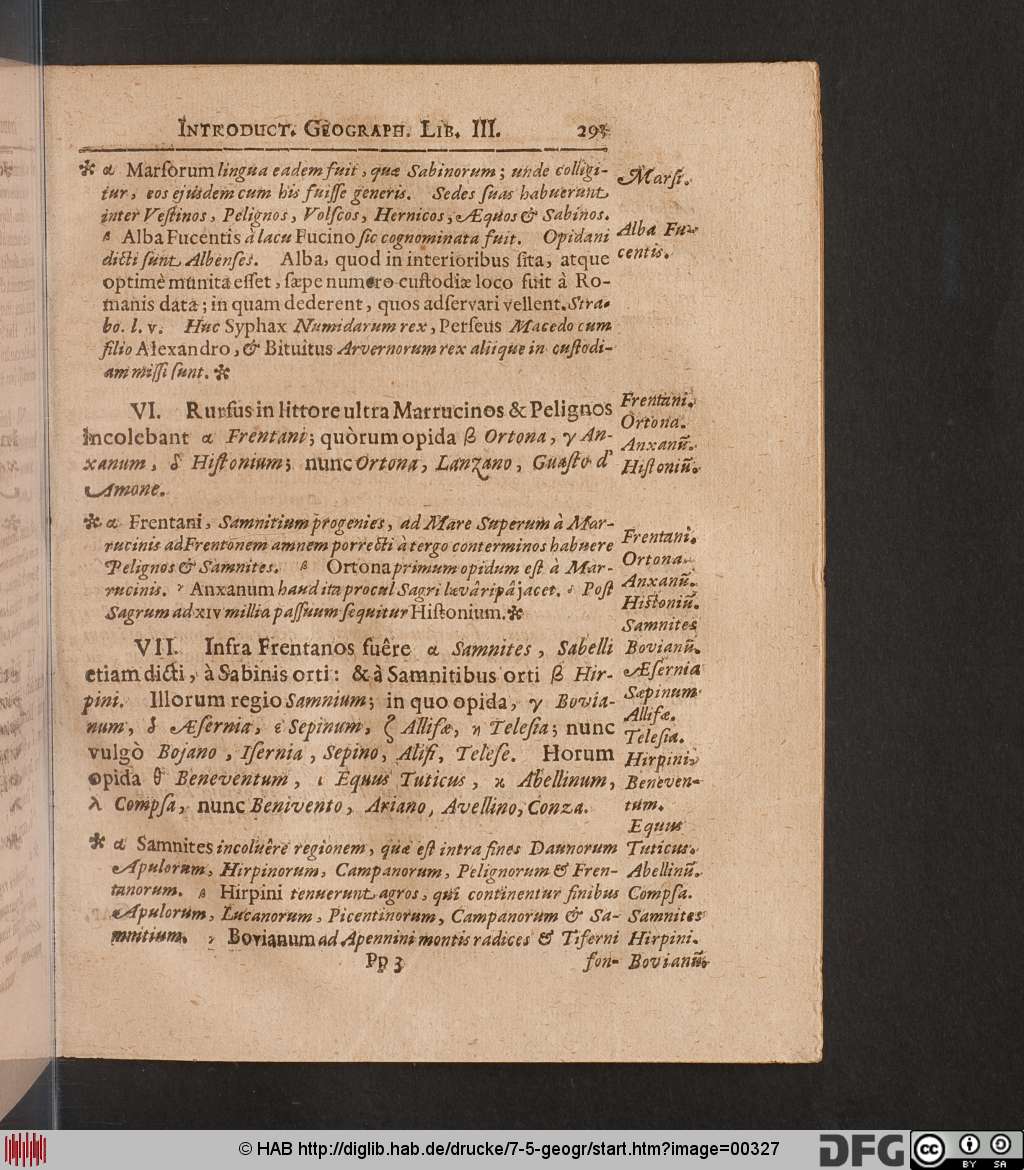 INTRODUCT. GEOGRAPH. LIB. III. 293
* α Marſorum lingua eadem fuit, quæ Sabinorum; unde colligi-
tur, eos ejusdem cum his fuiſſe generis. Sedes ſuas habuerunt
inter Veſtinos, Pelignos, Volſcos, Hernicos, Æquos & Sabinos.
β Alba Fucentis à lacu Fucino ſic cognominata fuit. Opidani
dicti ſunt Albenſes. Alba, quod in interioribus ſita, atque
optimè munita eſſet, ſæpe numero cuſtodiæ loco fuit à Ro-
manis data; in quam dederent, quos adſervari vellent. Stra-
bo. l. v. Huc Syphax Numidarum rex, Perſeus Macedo cum
filio Alexandro, & Bituitus Arvernorum rex aliique in cuſtodi-
am miſſi ſunt. *
Marſi.
Alba Fu-
centis.
VI. Rurſus in littore ultra Marrucinos & Pelignos
incolebant α Frentani; quòrum opida β Ortona, γ An-
xanum, δ Hiſtonium; nunc Ortona, Lanzano, Guaſto d'
Amone.
Frentani.
Ortona.
Anxanū.
Hiſtoniū.
* α Frentani, Samnitium progenies, ad Mare Superum à Mar-
rucinis ad Frentonem amnem porrecti à tergo conterminos habuere
Pelignos & Samnites. β Ortona primum opidum eſt à Mar-
rucinis. γ Anxanum haud ita procul Sagri lævâ ripâ jacet. δ Poſt
Sagrum ad XIV millia paſſuum ſequitur Hiſtonium. *
Frentani.
Ortona.
Anxanū.
Hiſtoniū.
VII. Infra Frentanos fuêre α Samnites, Sabelli
etiam dicti, à Sabinis orti: & à Samnitibus orti β Hir-
pini. Illorum regio Samnium; in quo opida, γ Bovia-
num, δ Æſernia, ε Sepinum, ζ Alliſæ, η Teleſia; nunc
vulgò Bojano, Iſernia, Sepino, Aliſi, Teleſe. Horum
opida θ Beneventum, ι Equus Tuticus, κ Abellinum,
λ Compſa, nunc Benivento, Ariano, Avellino, Conza.
Samnites
Bovianū.
Æſernia
Sæpinum
Alliſæ.
Teleſia.
Hirpini
Beneven-
tum.
Equus
Tuticus.
Abellinū.
Compſa.
* α Samnites incoluêre regionem, quæ eſt intra fines Daunorum
Apulorum, Hirpinorum, Campanorum, Pelignorum & Fren-
tanorum. β Hirpini tenuerunt agros, qui continentur finibus
Apulorum, Lucanorum, Picentinorum, Campanorum & Sa-
mnitium. γ Bovianum ad Apennini montis radices & Tiferni
Samnites
Hirpini.
Bovianū.
Pp 3 fon-
© HAB http://diglib.hab.de/drucke/7-5-geogr/start.htm?image=00327
DFG
cc
BY SA